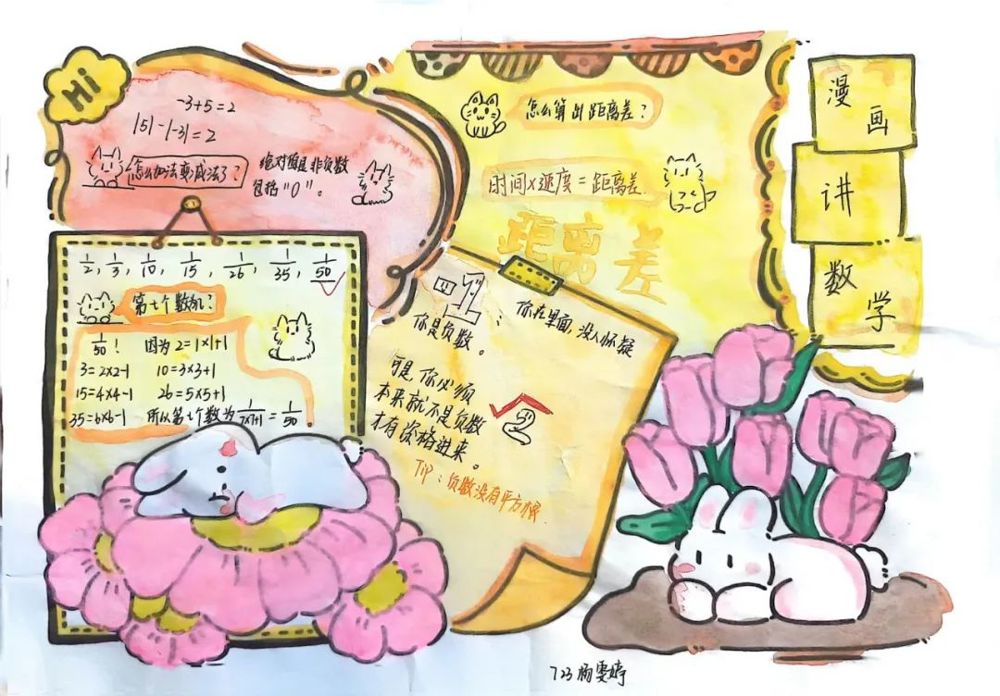 Hi
-3+5=2
|5|-|-3|=2
怎么加法变减法了?
绝对值是非负数
包括"0"。
怎么算出距离差?
时间×速度=距离差.
距离差
漫画
讲
数学
1/2, 1/3, 1/10, 1/15, 1/26, 1/35, 1/50
第七个数为?
1/50! 因为2=1×1+1
3=2×2-1 10=3×3+1
15=4×4-1 26=5×5+1
35=6×6-1 所以第七个数为1/7×7+1=1/50
-1
你是负数。
你在里面,没人怀疑
可是,你必须
本来就不是负数
才有资格进来。
2
Tip:负数没有平方根.
723
雯婷